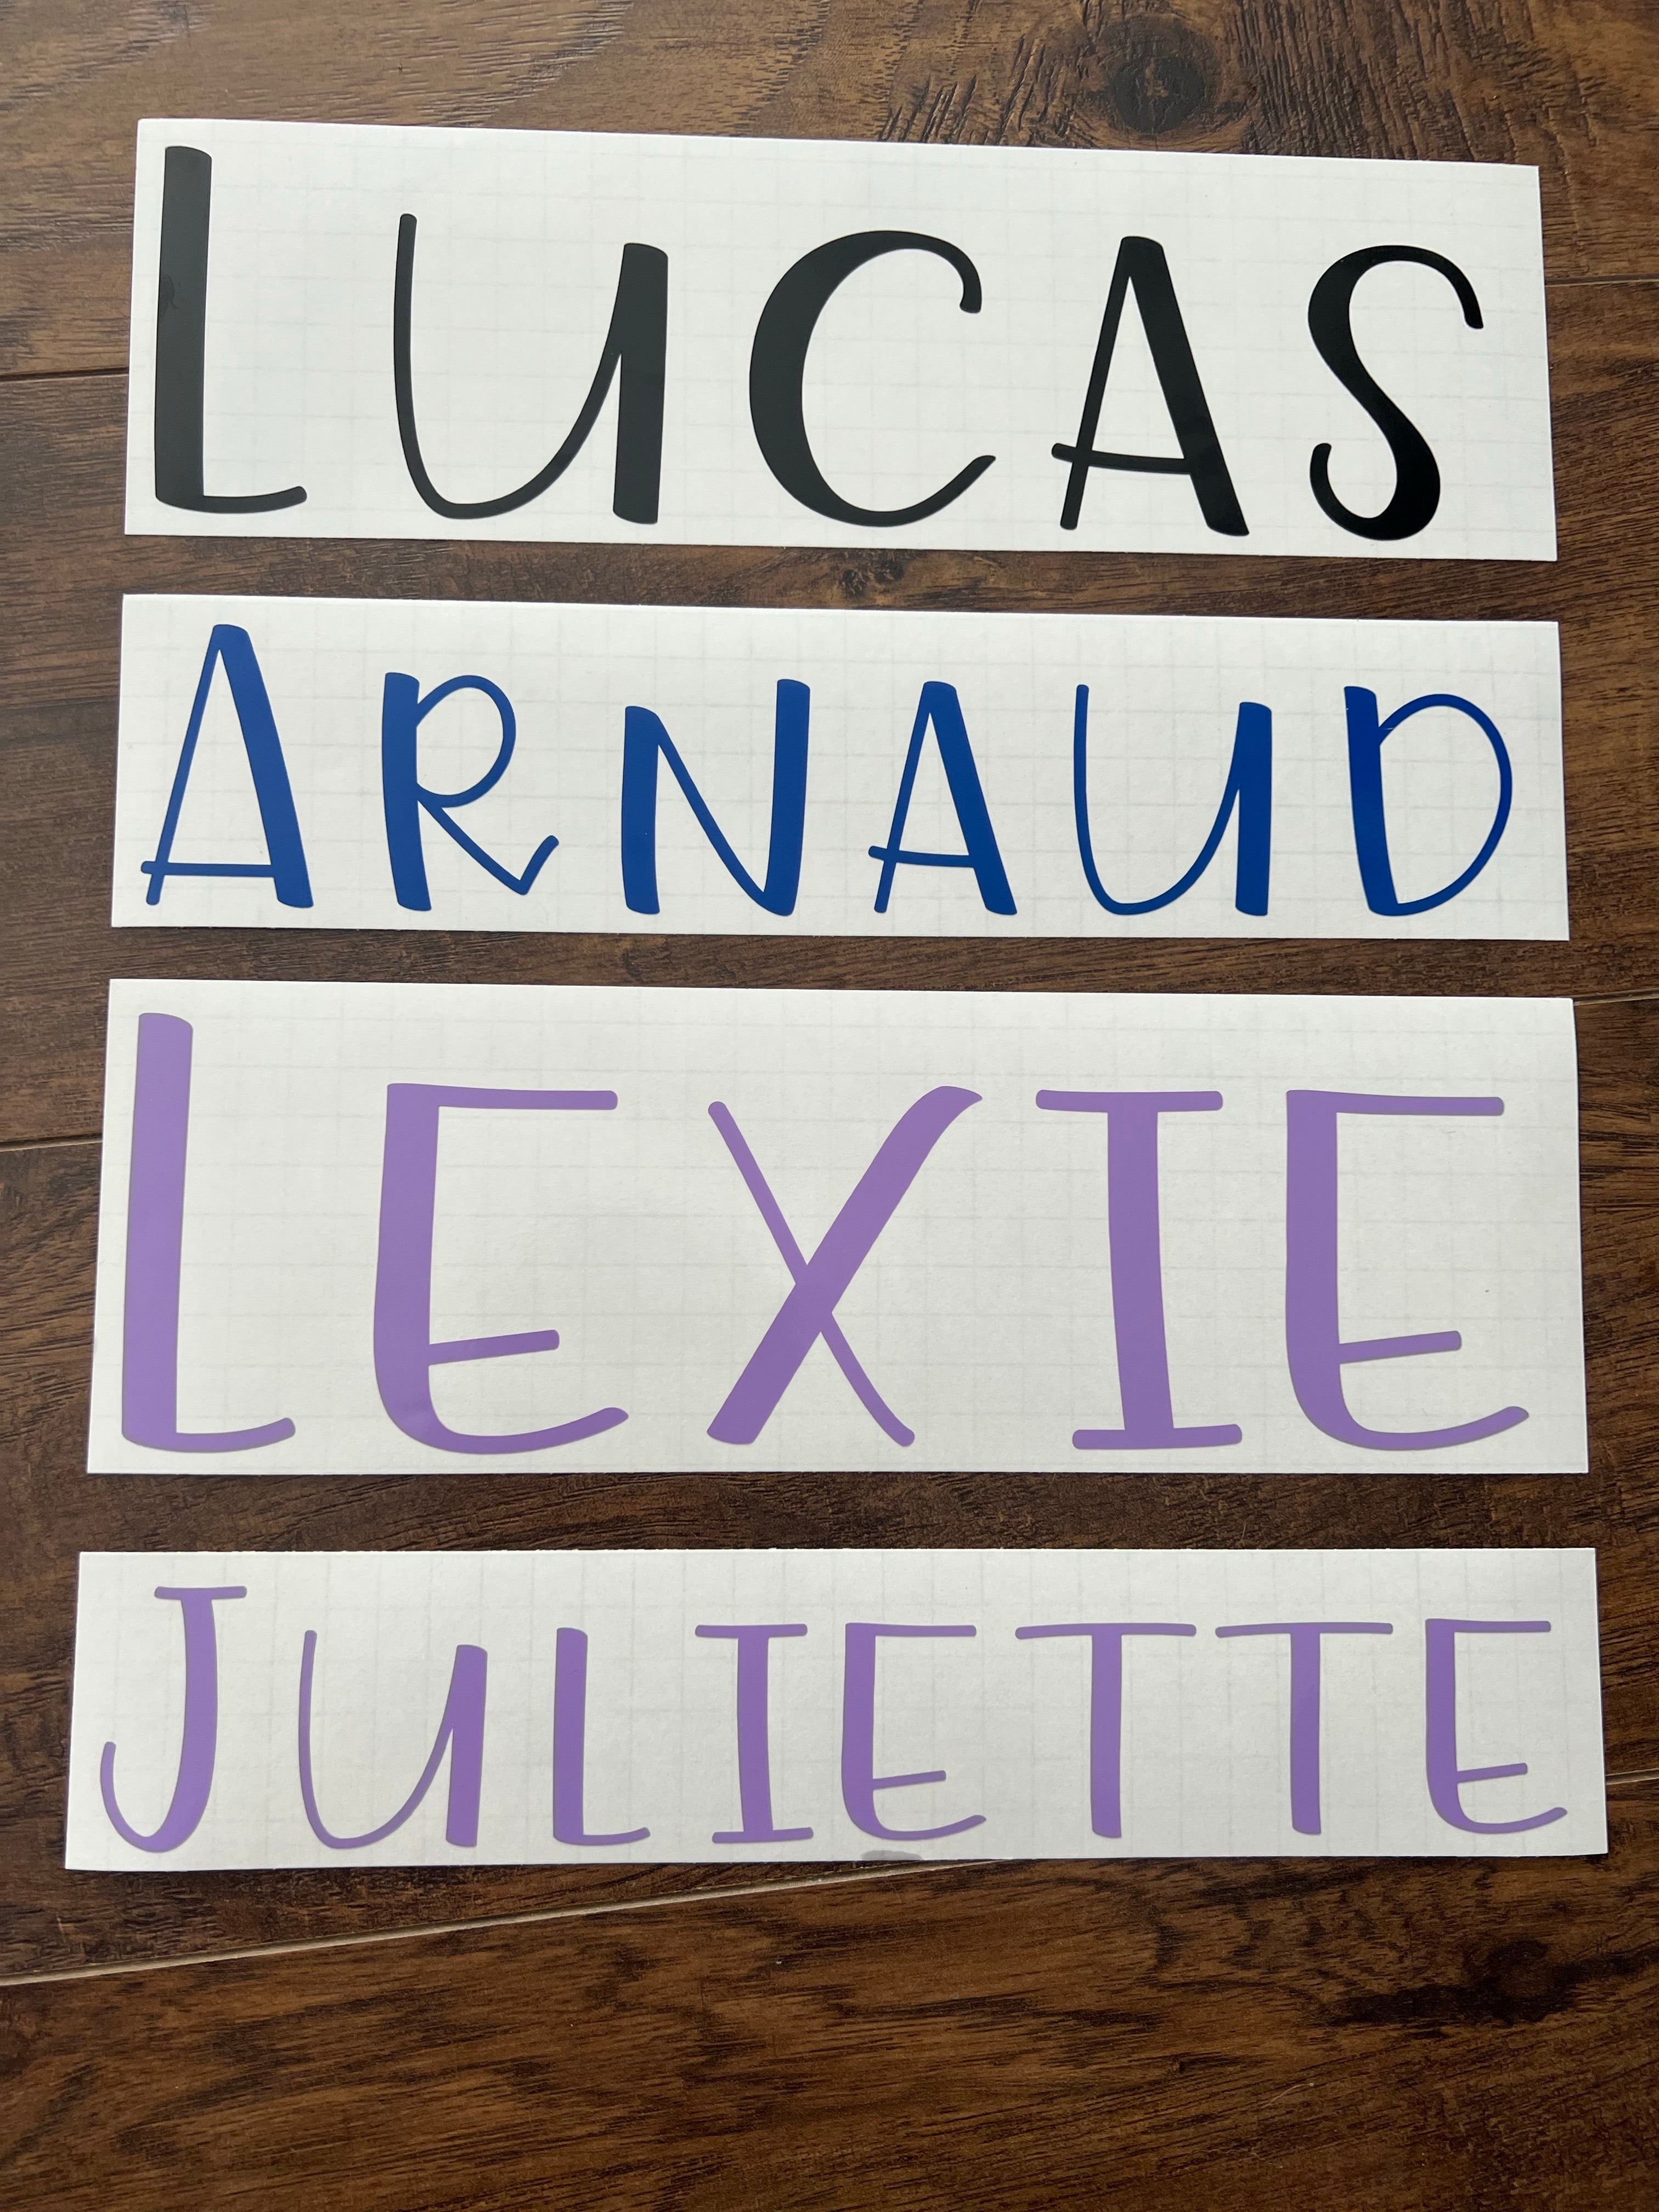 LUCAS
ARNAUD
LEXIE
JULIETTE